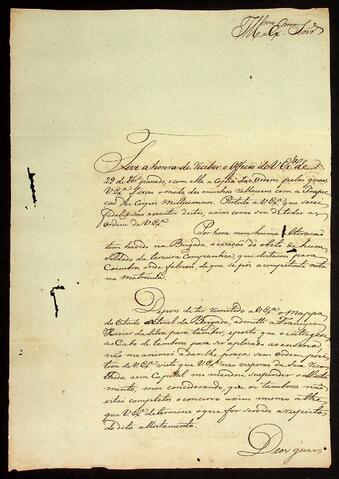 Illmo e Exmo Snr
Tive a honra de receber o Officio de V Exa de
29 de passado, e com elle a Copia das Ordens pelas quaes
V Exa fixou o modo das minhas relaçoens com a Inspec
cao dos Corpos Milicianos. Protesto a V Exa que serei
fidelissimo executor destas, assim como sou de todas as
Ordens de V Exa
Por hora nenhuma alteração
tem havido na Brigada, á exceição do obito de hum
Soldado da terceira Companhia, que destacou para
Coimbra onde faleceo, de que se pôz a competente nota
na Matricula.
Depois de ter remetido a V Exa o Mappa
do Estado actual da Brigada, admitti a
Xavier da Silva para tambor, e posto que o
ao Cabo de tambores para ser aplicado ao ensino
não me animei a dar-lhe praça sem Ordem posi
tiva de V Exa visto que V Exa nas vesporas da Sua
thida a essa Capital me mandou suspender o alista
mento, mas considerando que os tambores não
estão completos o conservo assim mesmo athe
que V Exa determine o que for servido a respeito
do dito alistamento.
Deos guar